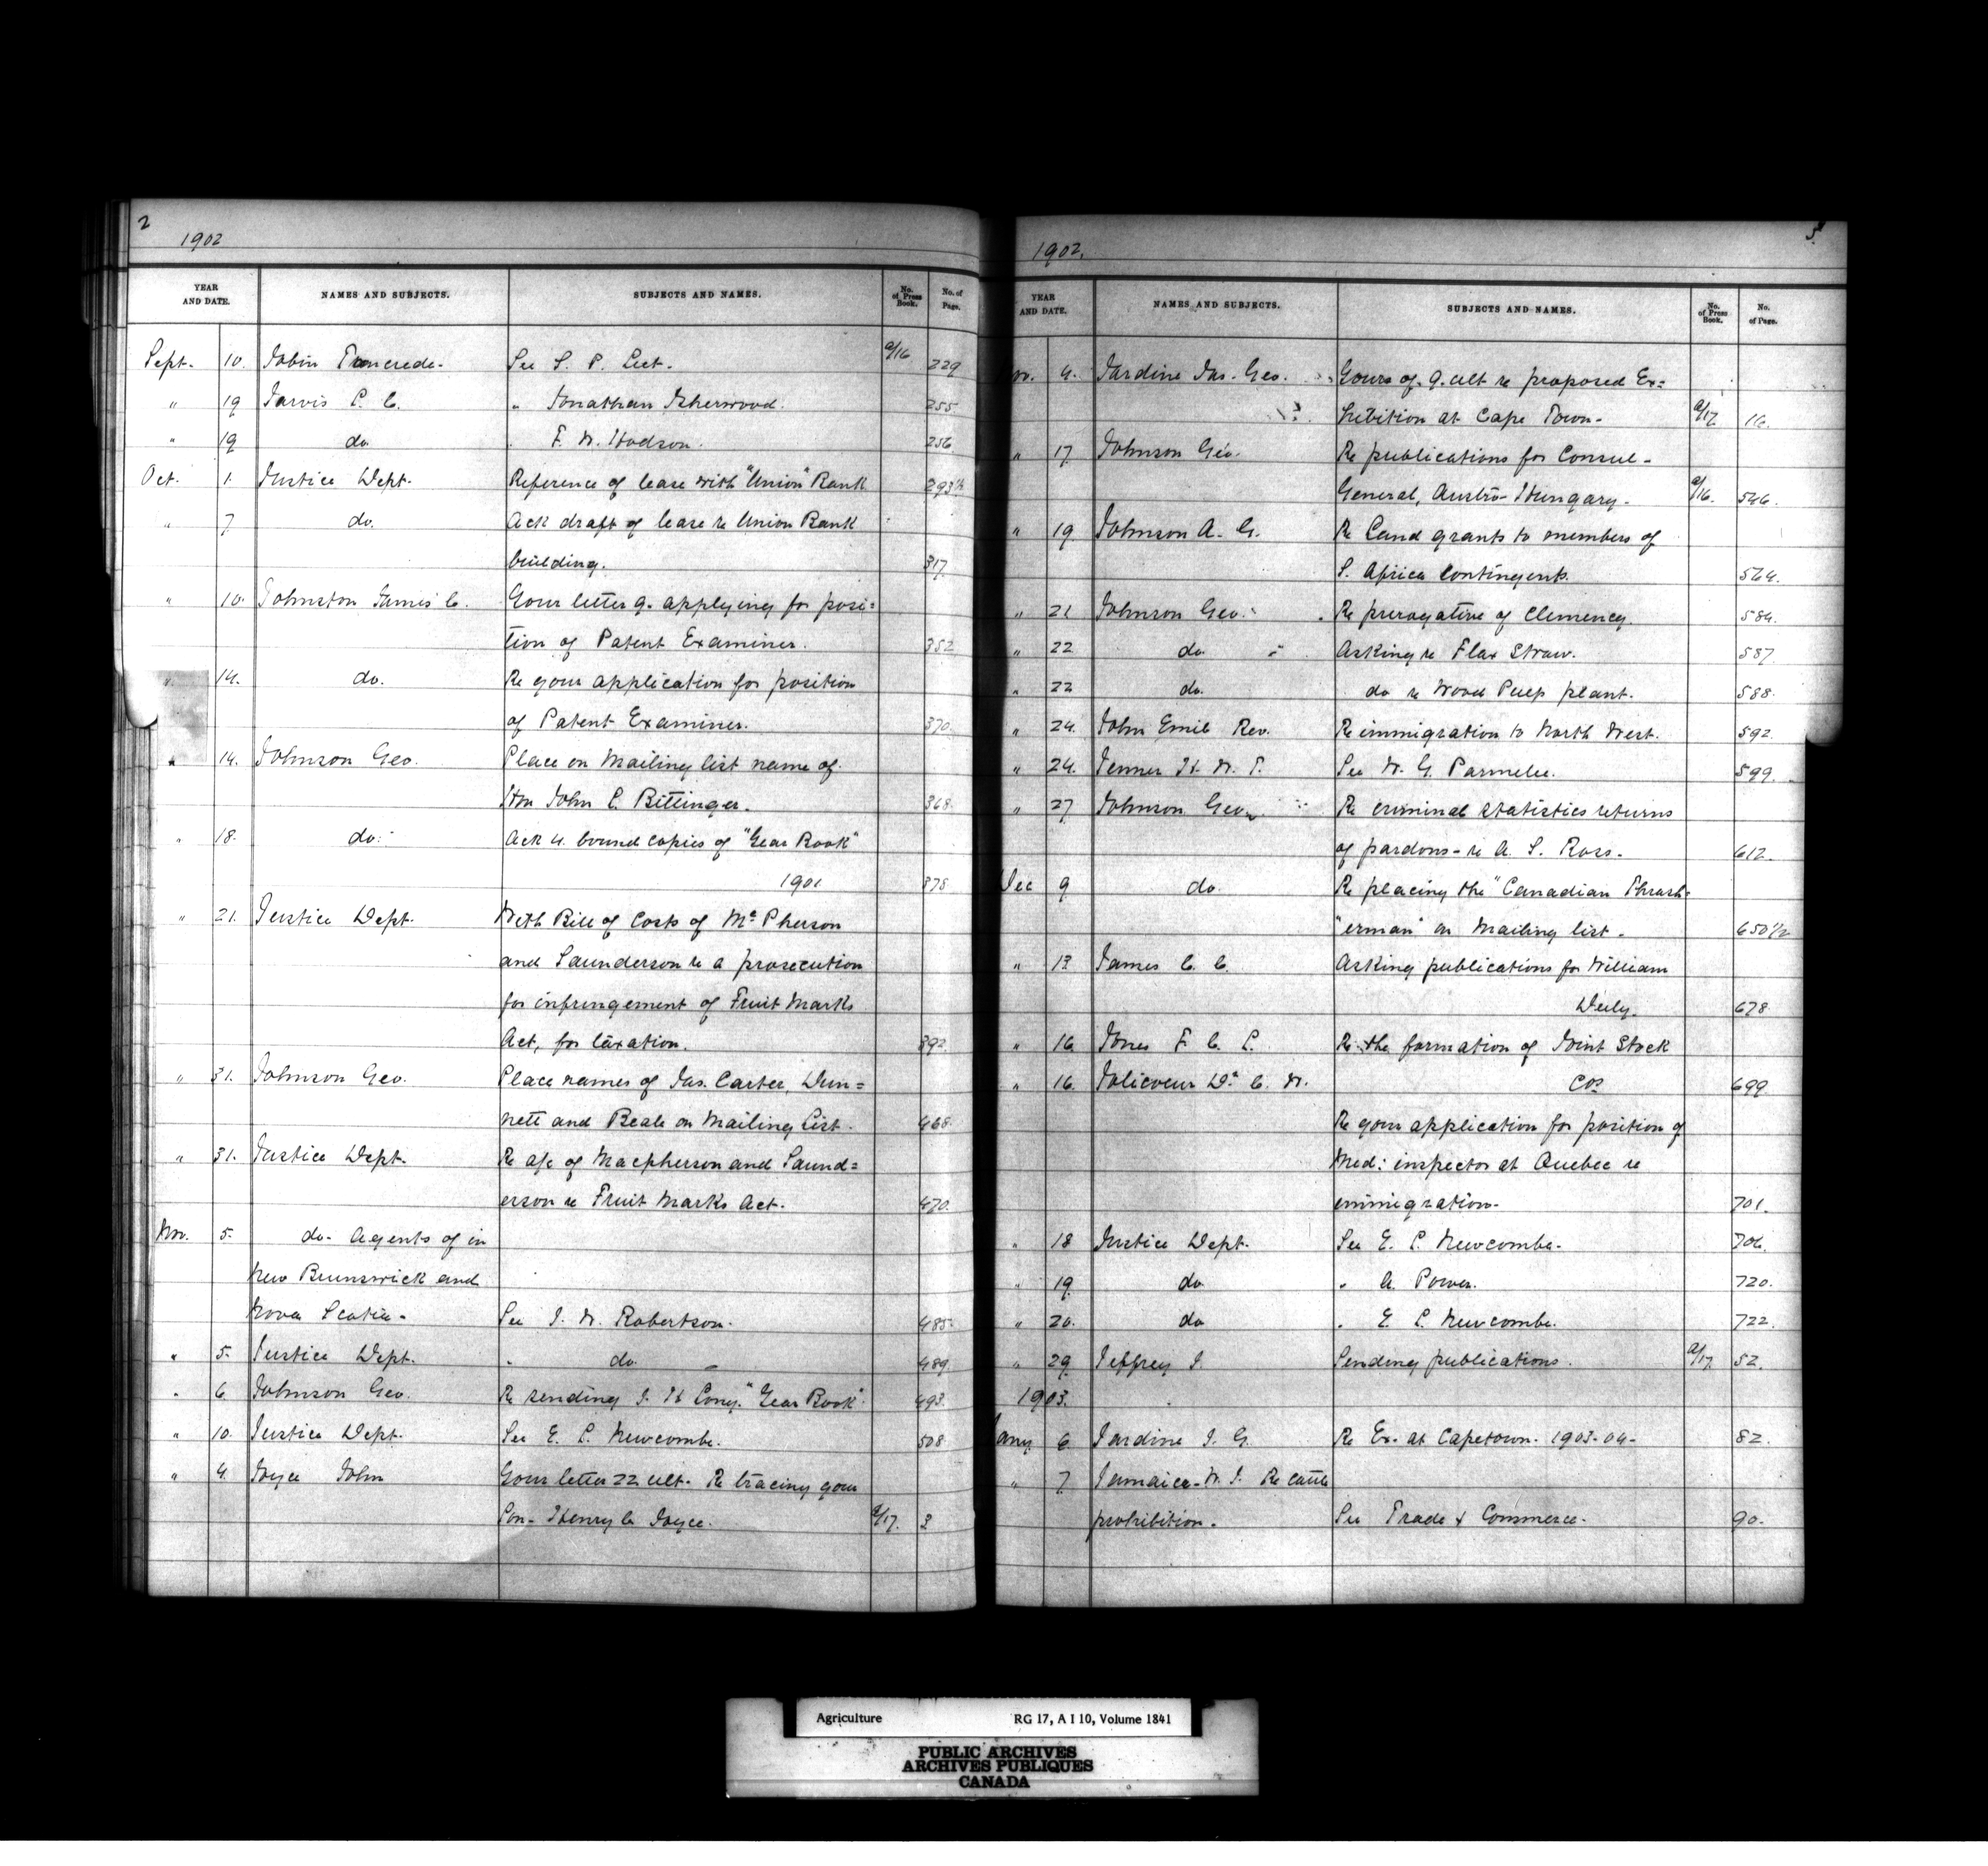 2
1902
YEAR AND DATE. NAMES AND SUBJECTS. SUBJECTS AND NAMES. No. of Press Book. No. of Page.
Sept. 10. Jobin Tancrede. See S. P. Leet. a/16 229
" 19 Jarvis P. C. " Jonathan Isherwood. 255
" 19 do " F. W. Hodson. 256
Oct. 1. Justice Dept. Reference of lease with "Union" Bank 293½
" 7 do. Ack draft of lease re Union Bank
building. 317
" 10. Johnston James C. Your letter 9. applying for posi=
tion of Patent Examiner. 352
" 14. do. Re your application for position
of Patent Examiner. 370.
" 14. Johnson Geo. Place on Mailing list name of
Hon John L. Bittinger. 368.
" 18. do. Ack 4. bound copies of "Year Book"
1901 378
" 21. Justice Dept. With Bill of Costs of McPherson
and Saunderson re a prosecution
for infringement of Fruit Marks
Act, for taxation. 392
" 31. Johnson Geo. Place names of Jas. Carter, Dun=
nett and Beale on Mailing List. 468.
" 31. Justice Dept. Re a/c of Macpherson and Saund=
erson re Fruit Marks Act. 470.
Nov. 5. do. Agents of in
New Brunswick and
Nova Scotia. See J. W. Robertson. 485
" 5. Justice Dept. " do. 489.
" 6 Johnson Geo. Re sending J. H Cony. "Year Book" 493.
" 10. Justice Dept. See E. L. Newcombe. 508
" 4. Joyce John Your letter 22 ult. Re tracing your
Son. Henry C. Joyce. a/17. 3
1902. 3
YEAR AND DATE. NAMES AND SUBJECTS. SUBJECTS AND NAMES. No. of Press Book. No. of Page.
Nov. 4. Jardine Jas. Geo. Yours of. 9. ult re proposed Ex=
hibition at Cape Town. a/17 16.
" 17 Johnson Geo. Re publications for Consul-
General, Austro-Hungary. a/16. 546.
" 19 Johnson A. G. Re Land grants to members of
S. Africa Contingents. 564.
" 21 Johnson Geo. Re prerogative of Clemency. 584.
" 22 do Asking re Flax Straw. 587
" 22 do. do re Wood Pulp plant. 588.
" 24. John Emil Rev. Re immigration to North West. 592
" 24. Jenner H. W. T. See W. G. Parmelee. 599.
" 27 Johnson Geo. Re criminal statistics returns
of pardons - re A. S. Ross. 612.
Dec 9 do. Re placing the "Canadian Thrash-
"erman" on Mailing list. 650½
" 13 James C. C. Asking publications for William
678
" 16 Jones F. C. L. Re the formation of Joint Stock
" 16. Jolicoeur Dr C. N. Cos 699.
Re your application for position of
Med: inspector at Quebec re
immigration. 701.
" 18 Justice Dept. See E. L. Newcombe. 706.
" 19 do " A. Power. 720.
" 20. do " E. L. Newcombe. 722.
" 29 Jeffrey J. Sending publications. a/17. 52.
1903.
Jany 6 Jardine J. G. Re Ex. at Capetown. 1903-04- 82.
" 7 Jamaica-W. I. Re cattle
prohibition. See Trade & Commerce. 90.
Agriculture RG 17, A I 10, Volume 1841
PUBLIC ARCHIVES
ARCHIVES PUBLIQUES
CANADA